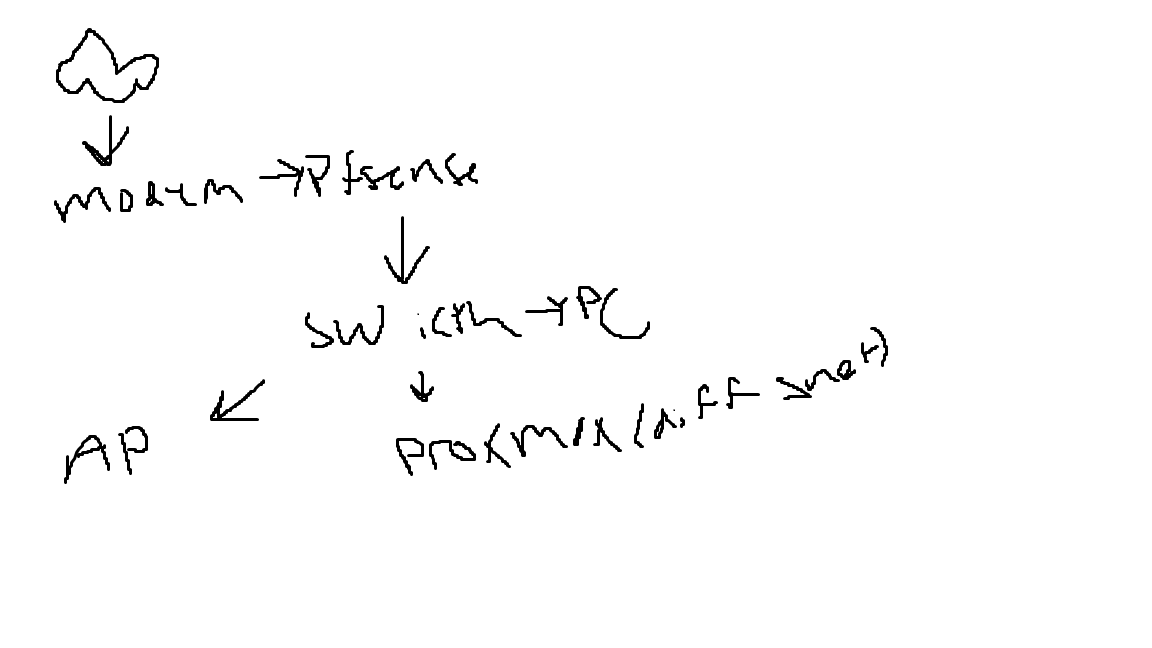 modem → Pfsense
switch → PC
AP
Proxmox (diff > net)